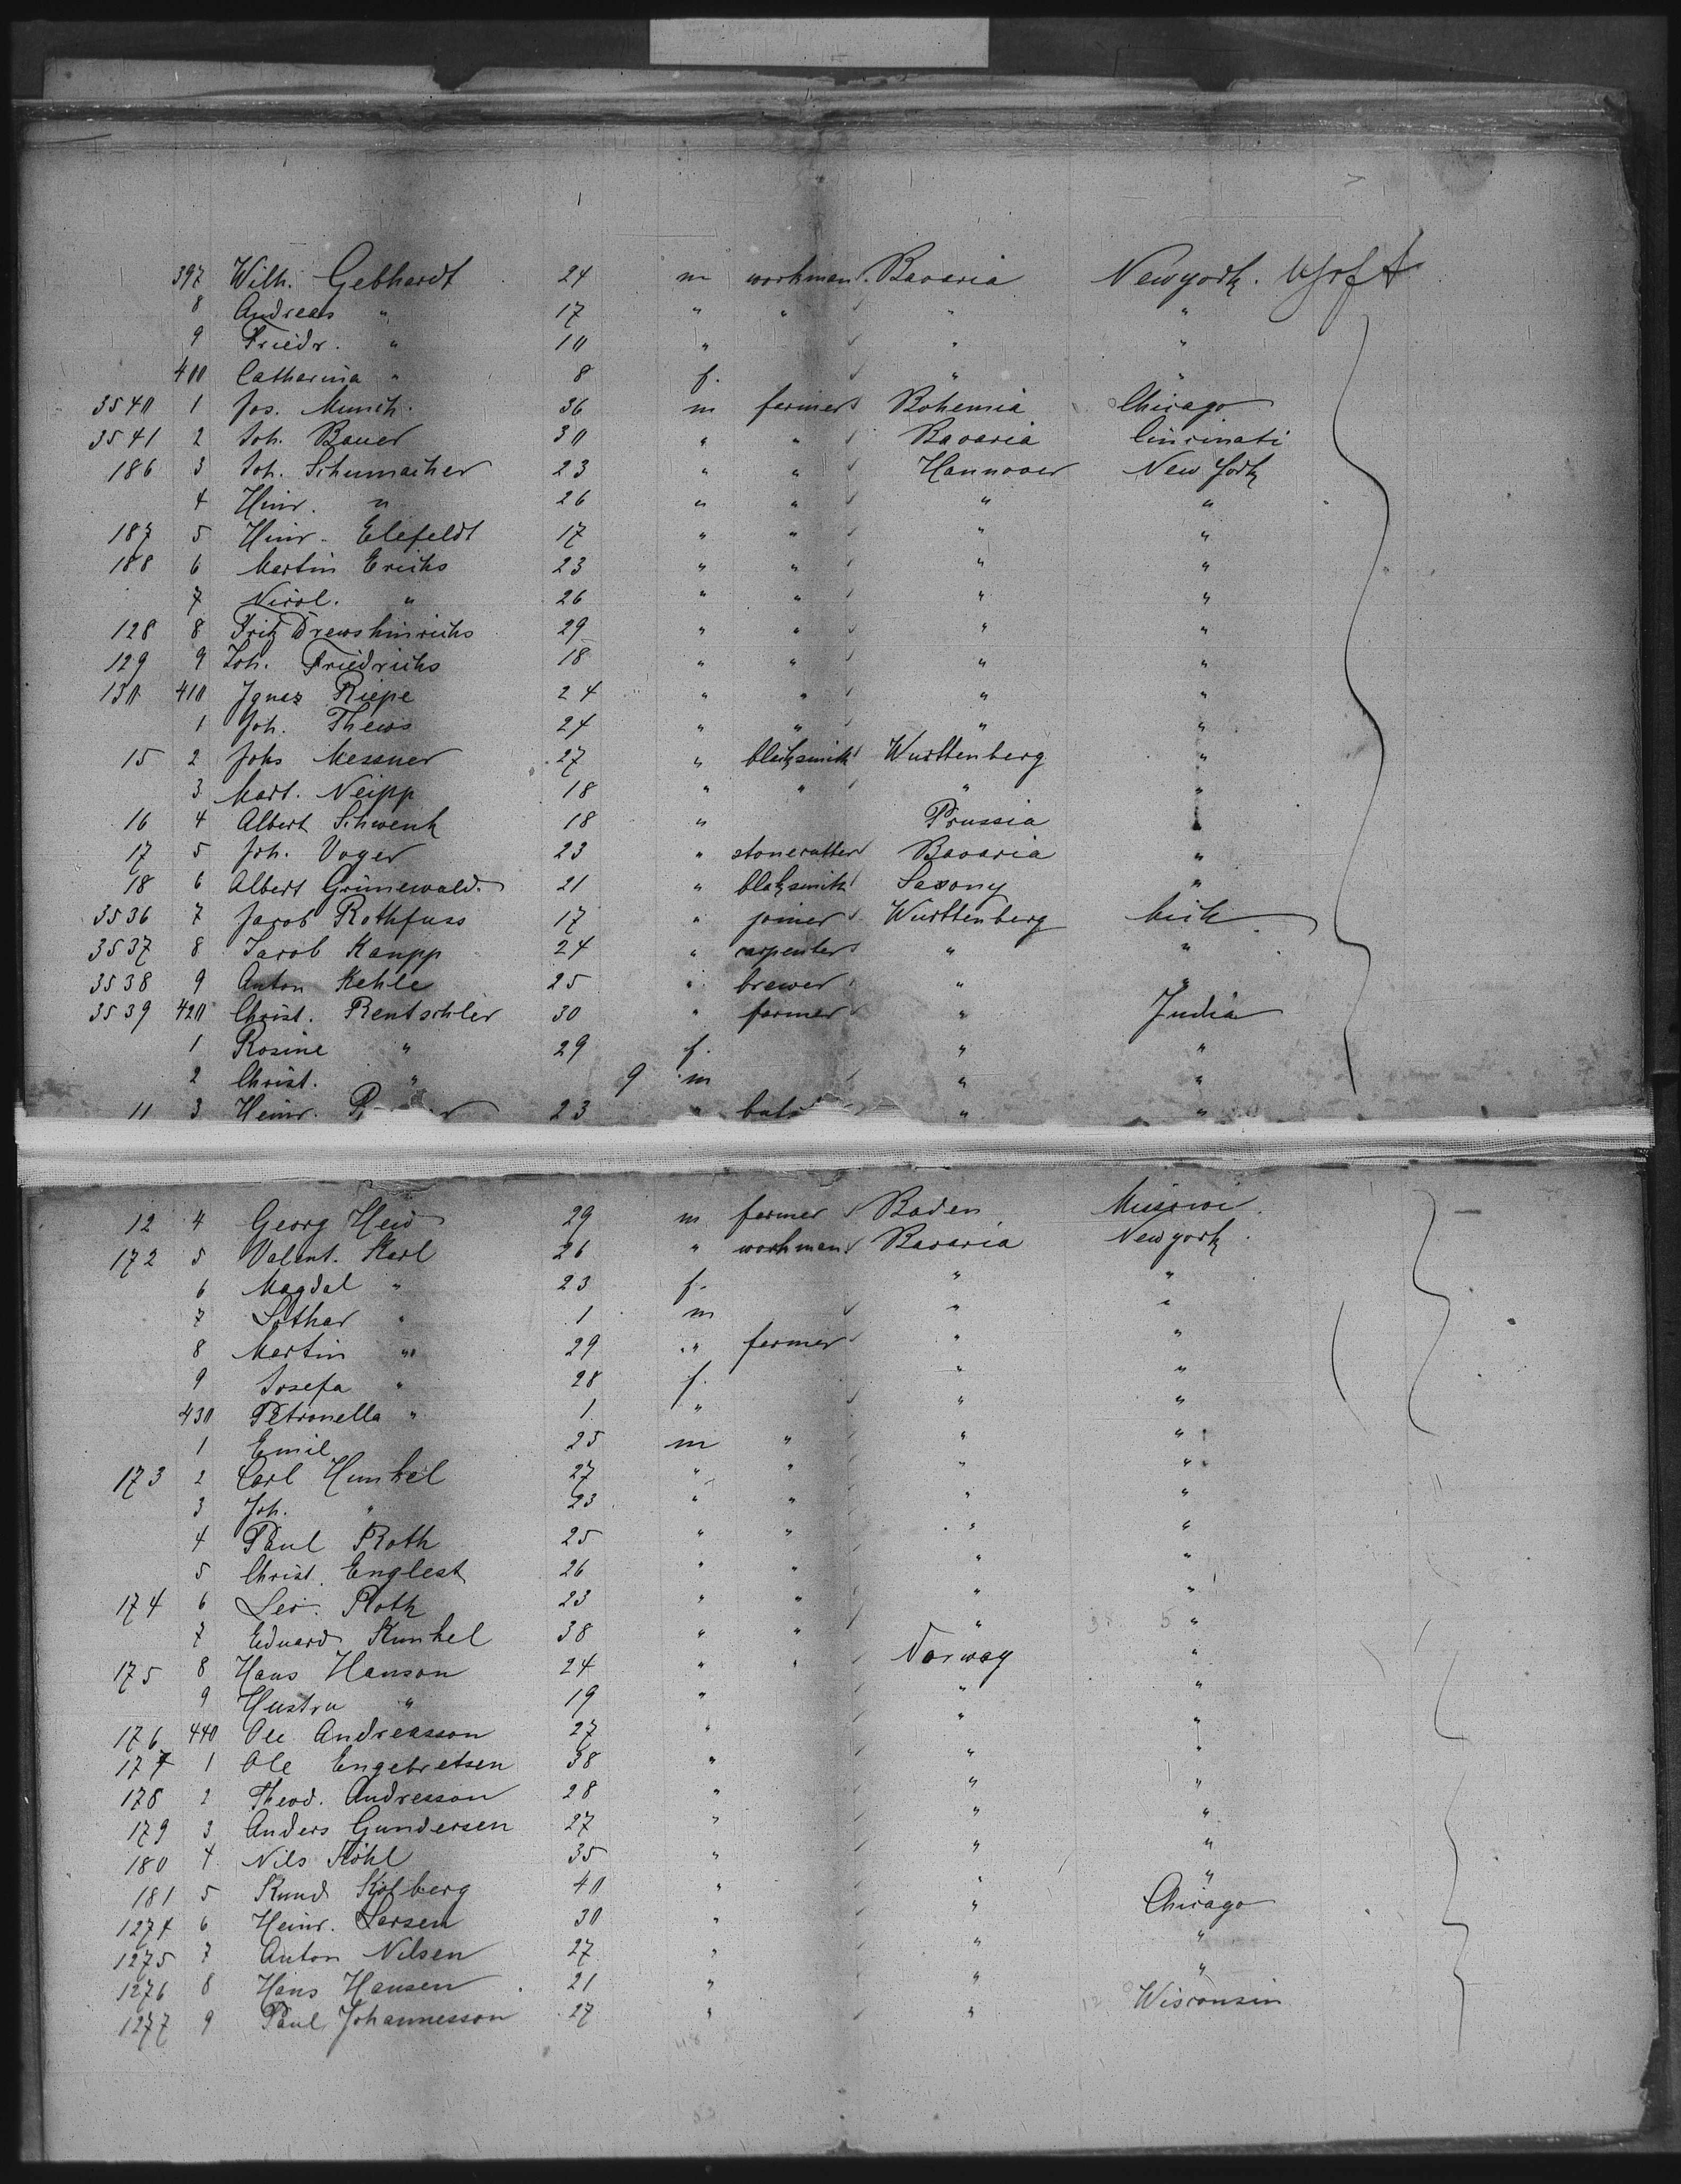 397 Wilh. Gebhardt 24 m workman Bavaria Newyork.
8 Andreas " 17 " " " "
9 Friedr. " 10 " " "
400 Catharina " 8 f. " "
3540 1 Jos. Munch. 36 m farmer Bohemia Chicago
3541 2 Joh. Bauer 30 " " Bavaria Cincinati
186 3 Joh. Schumacher 23 " " Hannover New York
4 Hinr. " 26 " " " "
187 5 Hinr. Elefeldt 17 " " " "
188 6 Martin Erichs 23 " " " "
7 Nicol. " 26 " " " "
128 8 Fritz Drewshinrichs 29 " " " "
129 9 Joh. Friedrichs 18 " " " "
130 410 Ignez Riepe 24 " " " "
1 Joh. Thews 24 " " " "
15 2 Johs Messner 27 " blacksmith Wurttenberg "
3 Mart. Neipp 18 " " " "
16 4 Albert Schwenk 18 " Prussia "
17 5 Joh. Voger 23 " stonecutter Bavaria "
18 6 Albert Grünewald. 21 " blaksmith Saxony "
3536 7 Jacob Rothfuss 17 " joiner Wurttenberg Mich
3537 8 Jacob Kaupp 24 " carpenter " "
3538 9 Anton Kehle 25 " brewer " "
3539 420 Christ. Rentschler 30 " farmer " India
1 Rosine " 29 f. " "
2 Christ. " 9 m " "
11 3 Heinr. 23 " " "
12 4 Georg Heid 29 m farmer Baden Missowi.
172 5 Valent. Karl 26 " workman Bavaria Newyork.
6 Magdal " 23 f. " "
7 Lothar " 1 m " "
8 Martin " 29 " farmer " "
9 Josefa " 28 f. " "
430 Petronella " 1 " " "
1 Emil 25 m " " "
173 2 Carl Hunkel 27 " " " "
3 Joh. " 23 " " " "
4 Paul Roth 25 " " " "
5 Christ. Englest 26 " " " "
174 6 Leo. Roth 23 " " " "
7 Eduard Kunkel 38 " " " "
175 8 Hans Hanson 24 " " Norway "
9 Hustru " 19 " " "
176 440 Ole Andreasson 27 " " "
177 1 Ole Engebretsen 38 " " "
178 2 Theod. Andresson 28 " " "
179 3 Anders Gundersen 27 " " "
180 4 Nils Köhl 35 " " "
181 5 Knud Kolberg 40 " " "
1274 6 Heinr. Larsen 30 " " Chicago
1275 7 Anton Nilsen 27 " " "
1276 8 Hans Hansen 21 " " "
1277 9 Paul Johannesson 27 " " Wisconsin